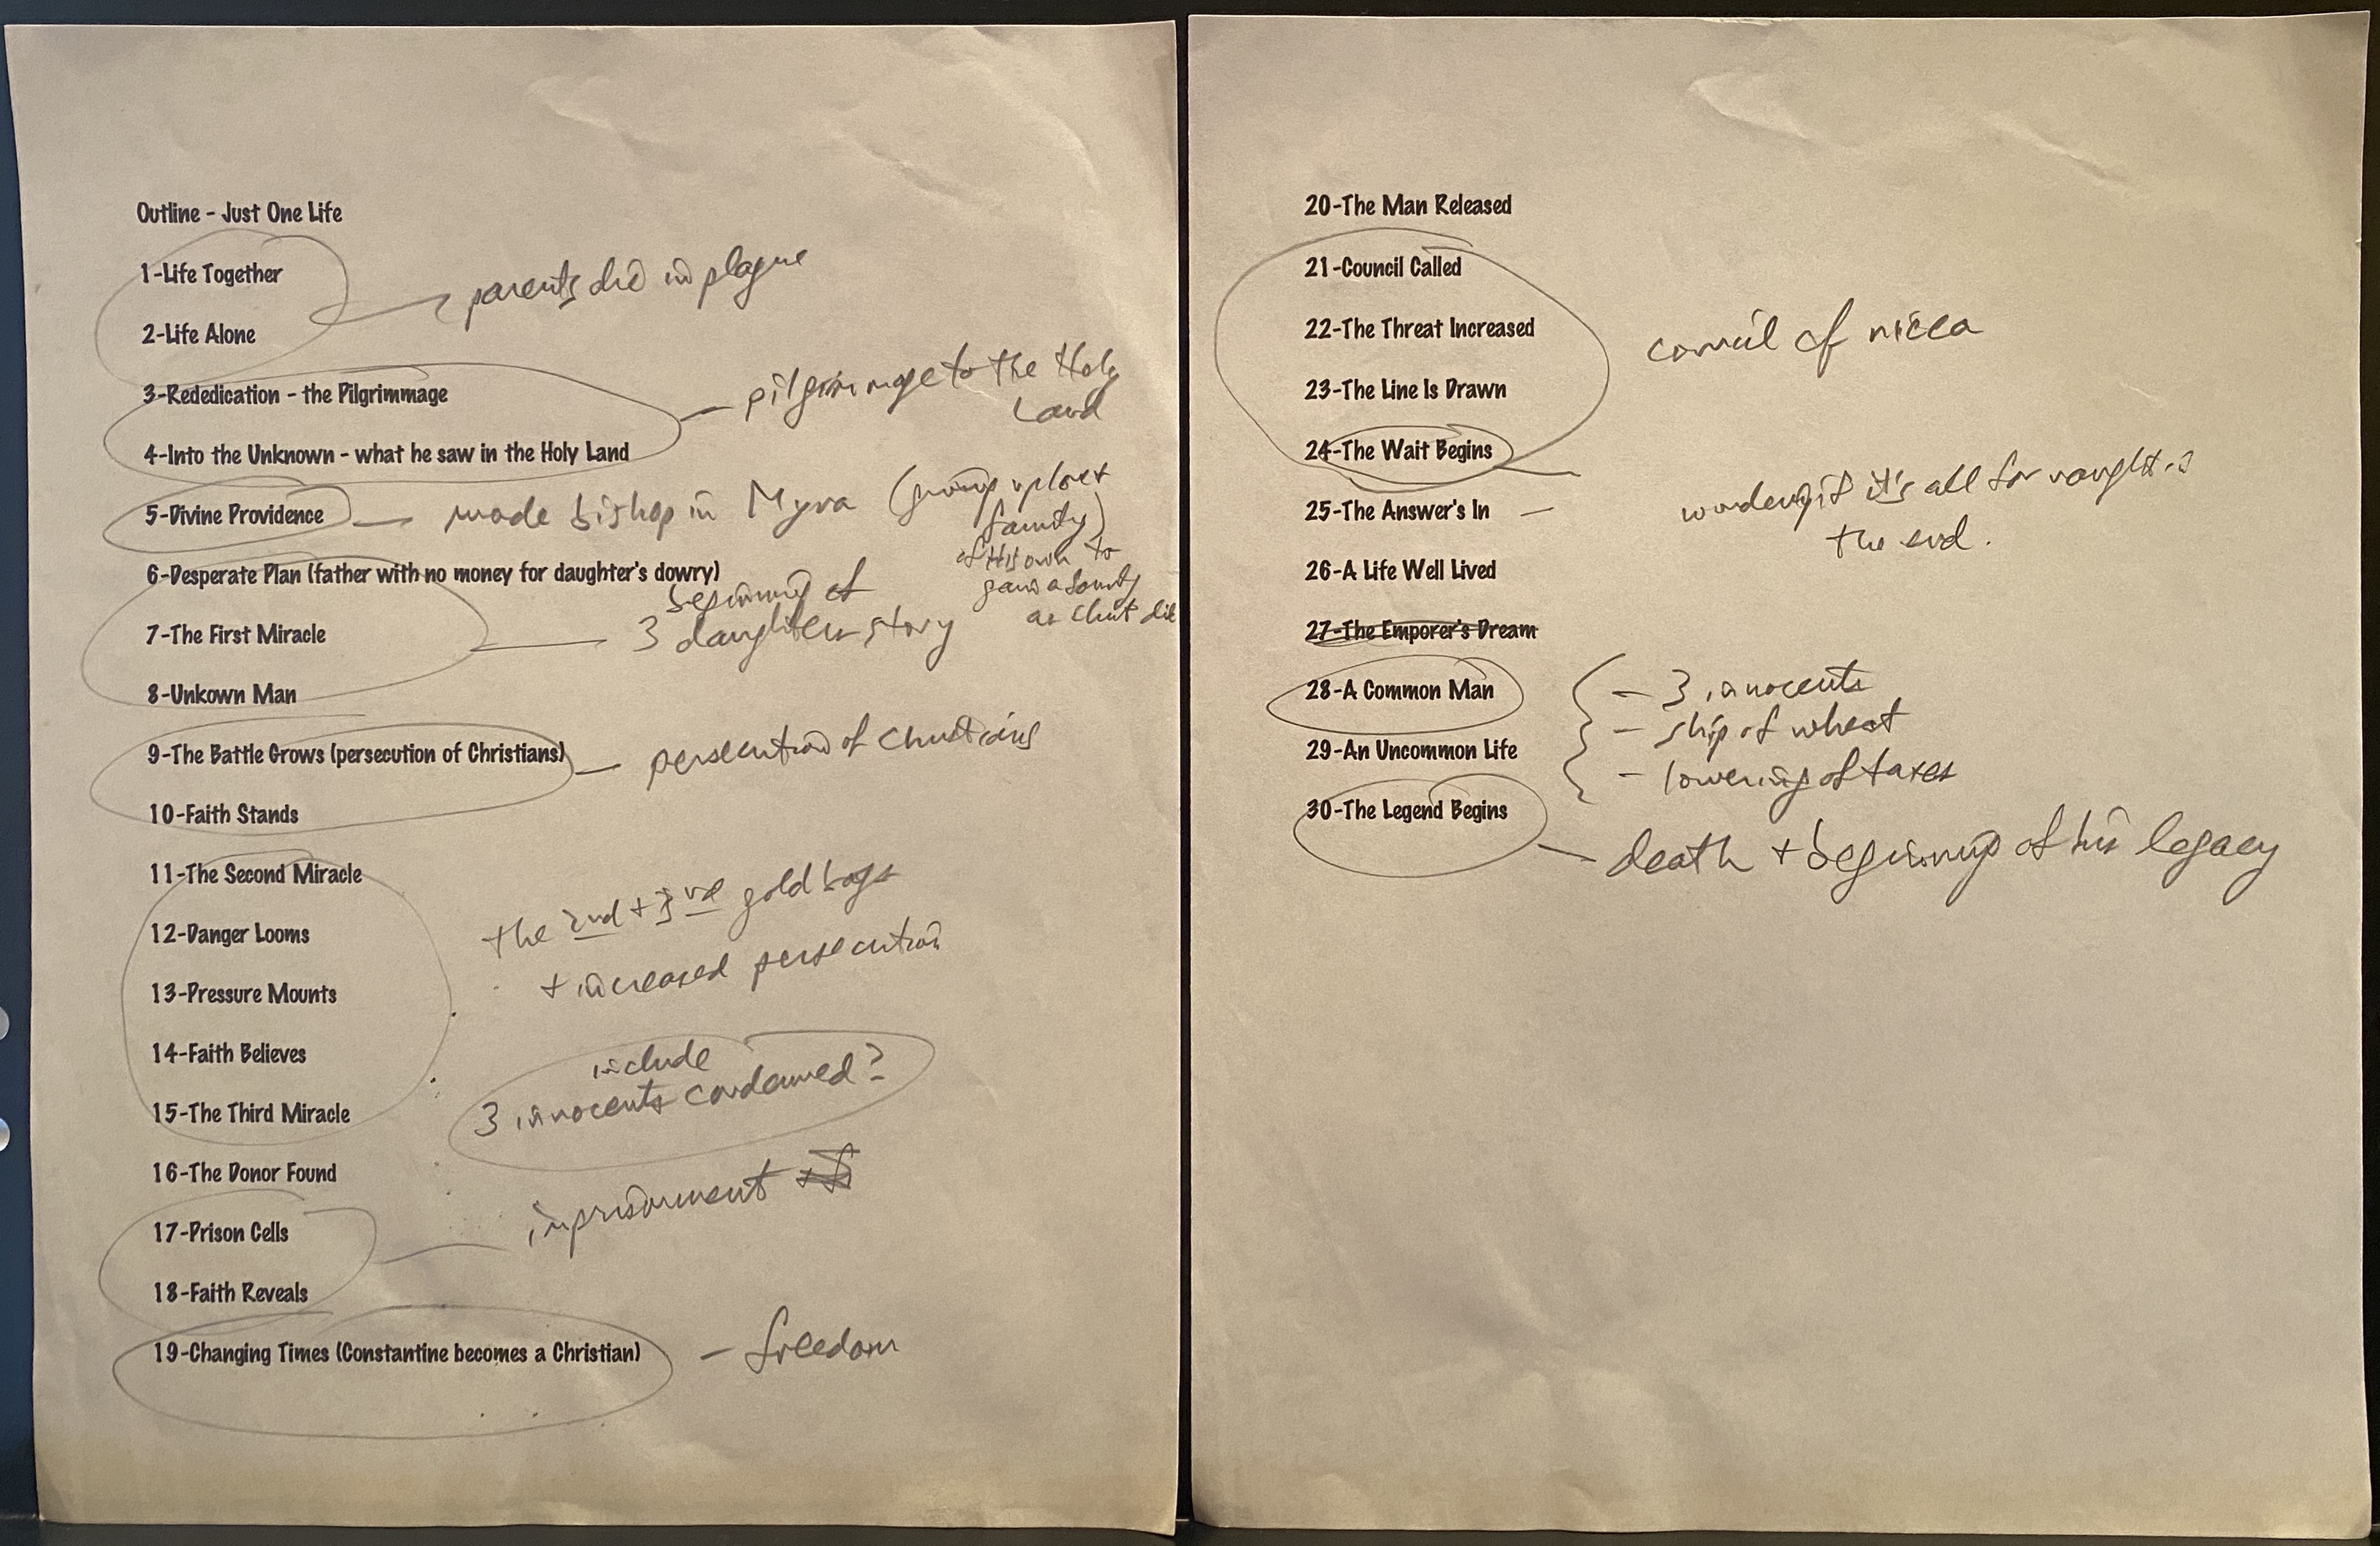 Outline - Just One Life
1-Life Together
parents died in plague
2-Life Alone
3-Rededication - the Pilgrimmage
pilgrimmage to the Holy
Land
4-Into the Unknown - what he saw in the Holy Land
5-Divine Providence
made bishop in Myra (giving up
family)
of His own to
gain a family
as Christ did
6-Desperate Plan (father with no money for daughter's dowry)
beginning of
3 daughters story
7-The First Miracle
8-Unkown Man
9-The Battle Grows (persecution of Christians)
persecution of Christians
10-Faith Stands
11-The Second Miracle
the 2nd + 3rd gold bags
+ increased persecution
12-Danger Looms
13-Pressure Mounts
14-Faith Believes
include
3 innocents condemned?
15-The Third Miracle
16-The Donor Found
imprisonment
17-Prison Cells
18-Faith Reveals
19-Changing Times (Constantine becomes a Christian)
- freedom
20-The Man Released
21-Council Called
22-The Threat Increased
council of nicea
23-The Line Is Drawn
24-The Wait Begins
25-The Answer's In -
if it's all for naught
the end.
26-A Life Well Lived
27-The Emporer's Dream
28-A Common Man
- 3 innocents
- ship of wheat
- lowering of taxes
29-An Uncommon Life
30-The Legend Begins
death + beginning of his legacy